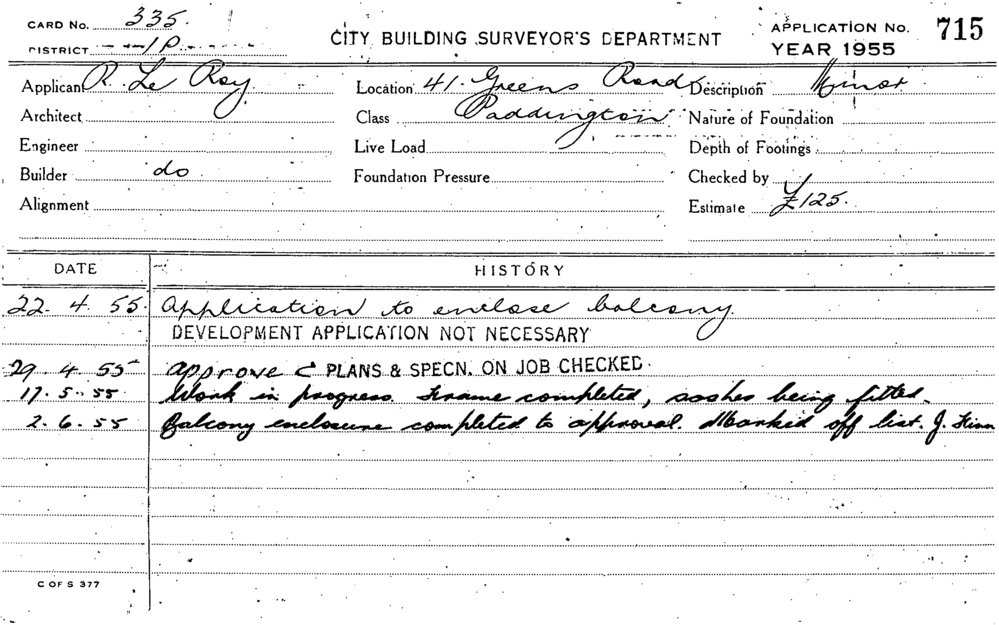 CARD No. 335.
DISTRICT 1P
CITY BUILDING SURVEYOR'S DEPARTMENT
APPLICATION No. 715
YEAR 1955
Applicant R. Le Roy.
Location 41. Greens Road
Description Minor
Architect
Class Paddington
Nature of Foundation
Engineer
Live Load
Depth of Footings
Builder do
Foundation Pressure
Checked by
Alignment
Estimate £125.
DATE HISTORY
22. 4. 55 Application to enclose balcony.
DEVELOPMENT APPLICATION NOT NECESSARY
29. 4. 55 Approve C PLANS & SPECN. ON JOB CHECKED.
17. 5. 55 Work in progress. Frame completed, sashes being fitted.
2. 6. 55 Balcony enclosure completed to approval. Marked off list. J.
C OF S 377